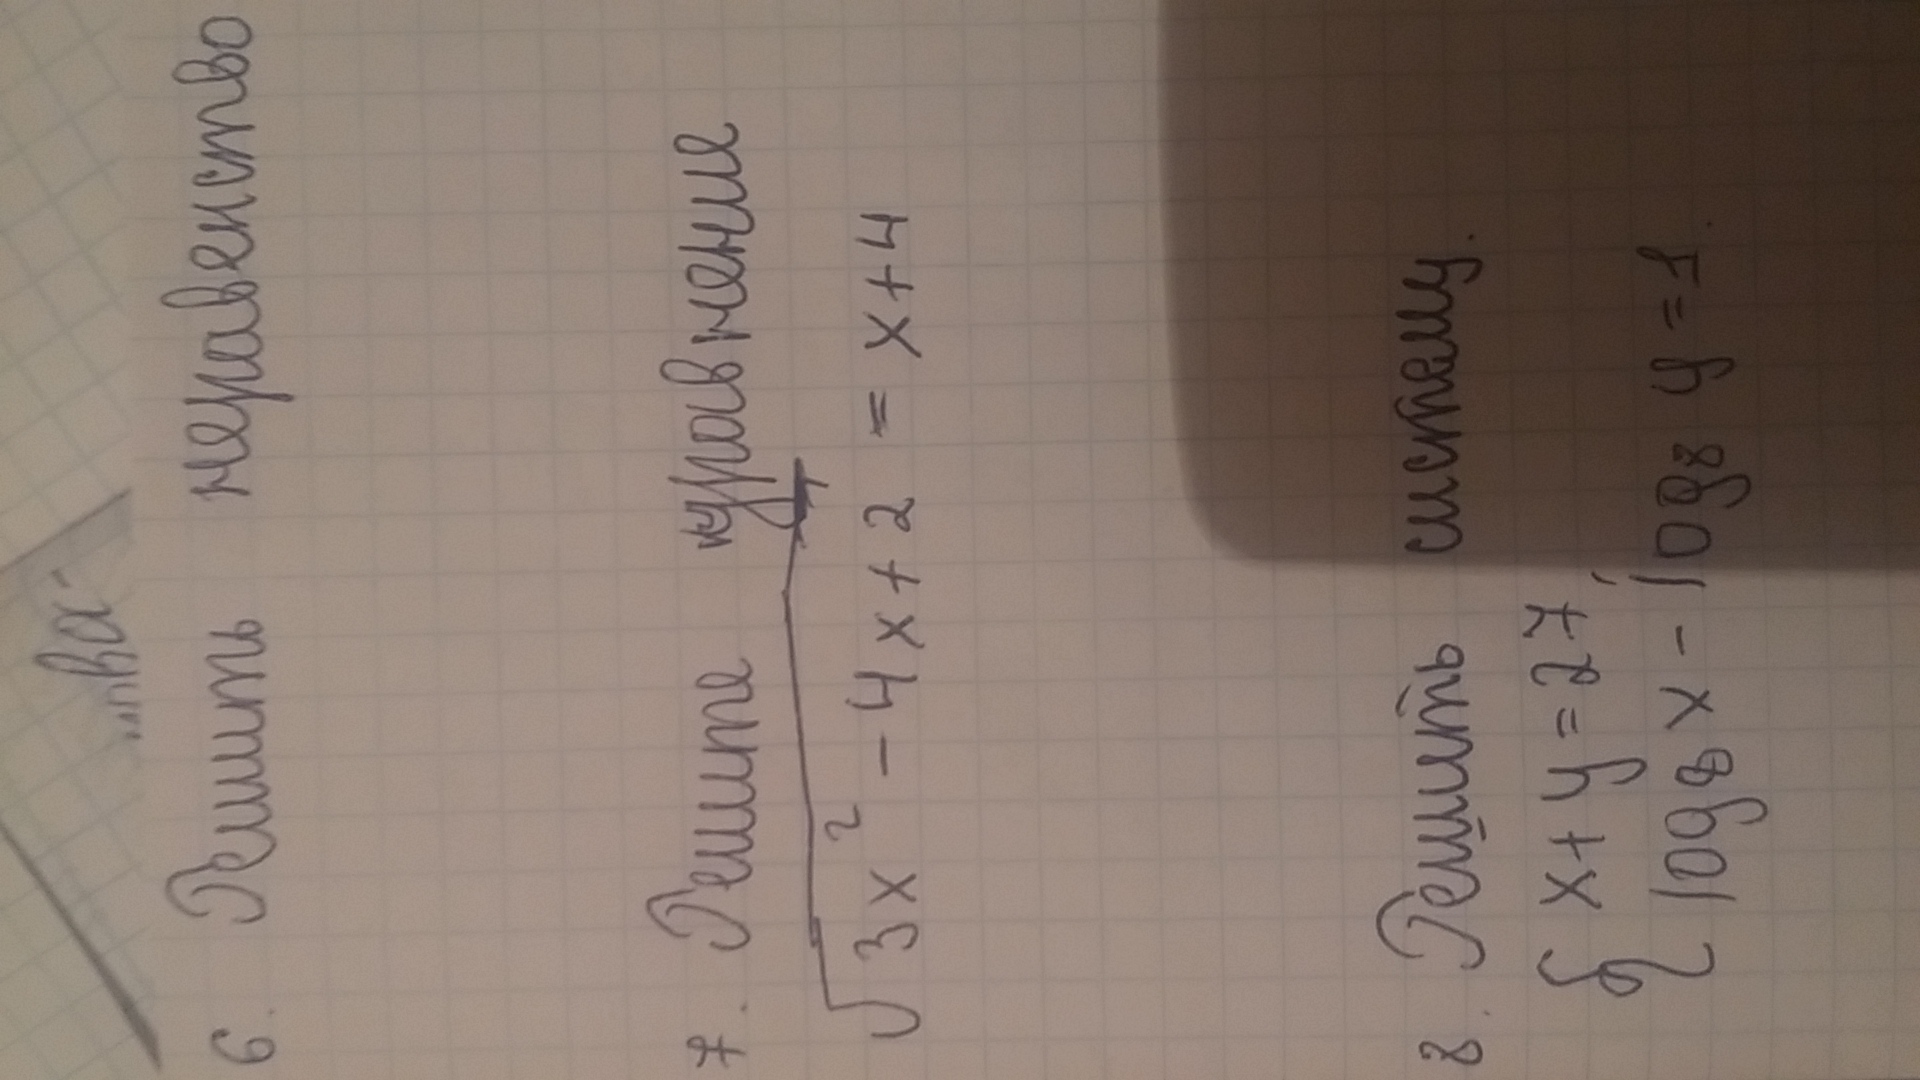 ...ва
6. Решить неравенство
7. Решите уравнение
√3x² - 4x + 2 = x + 4
8. Решить систему.
{ x + y = 27,
log₈ x - log₈ y = 1.